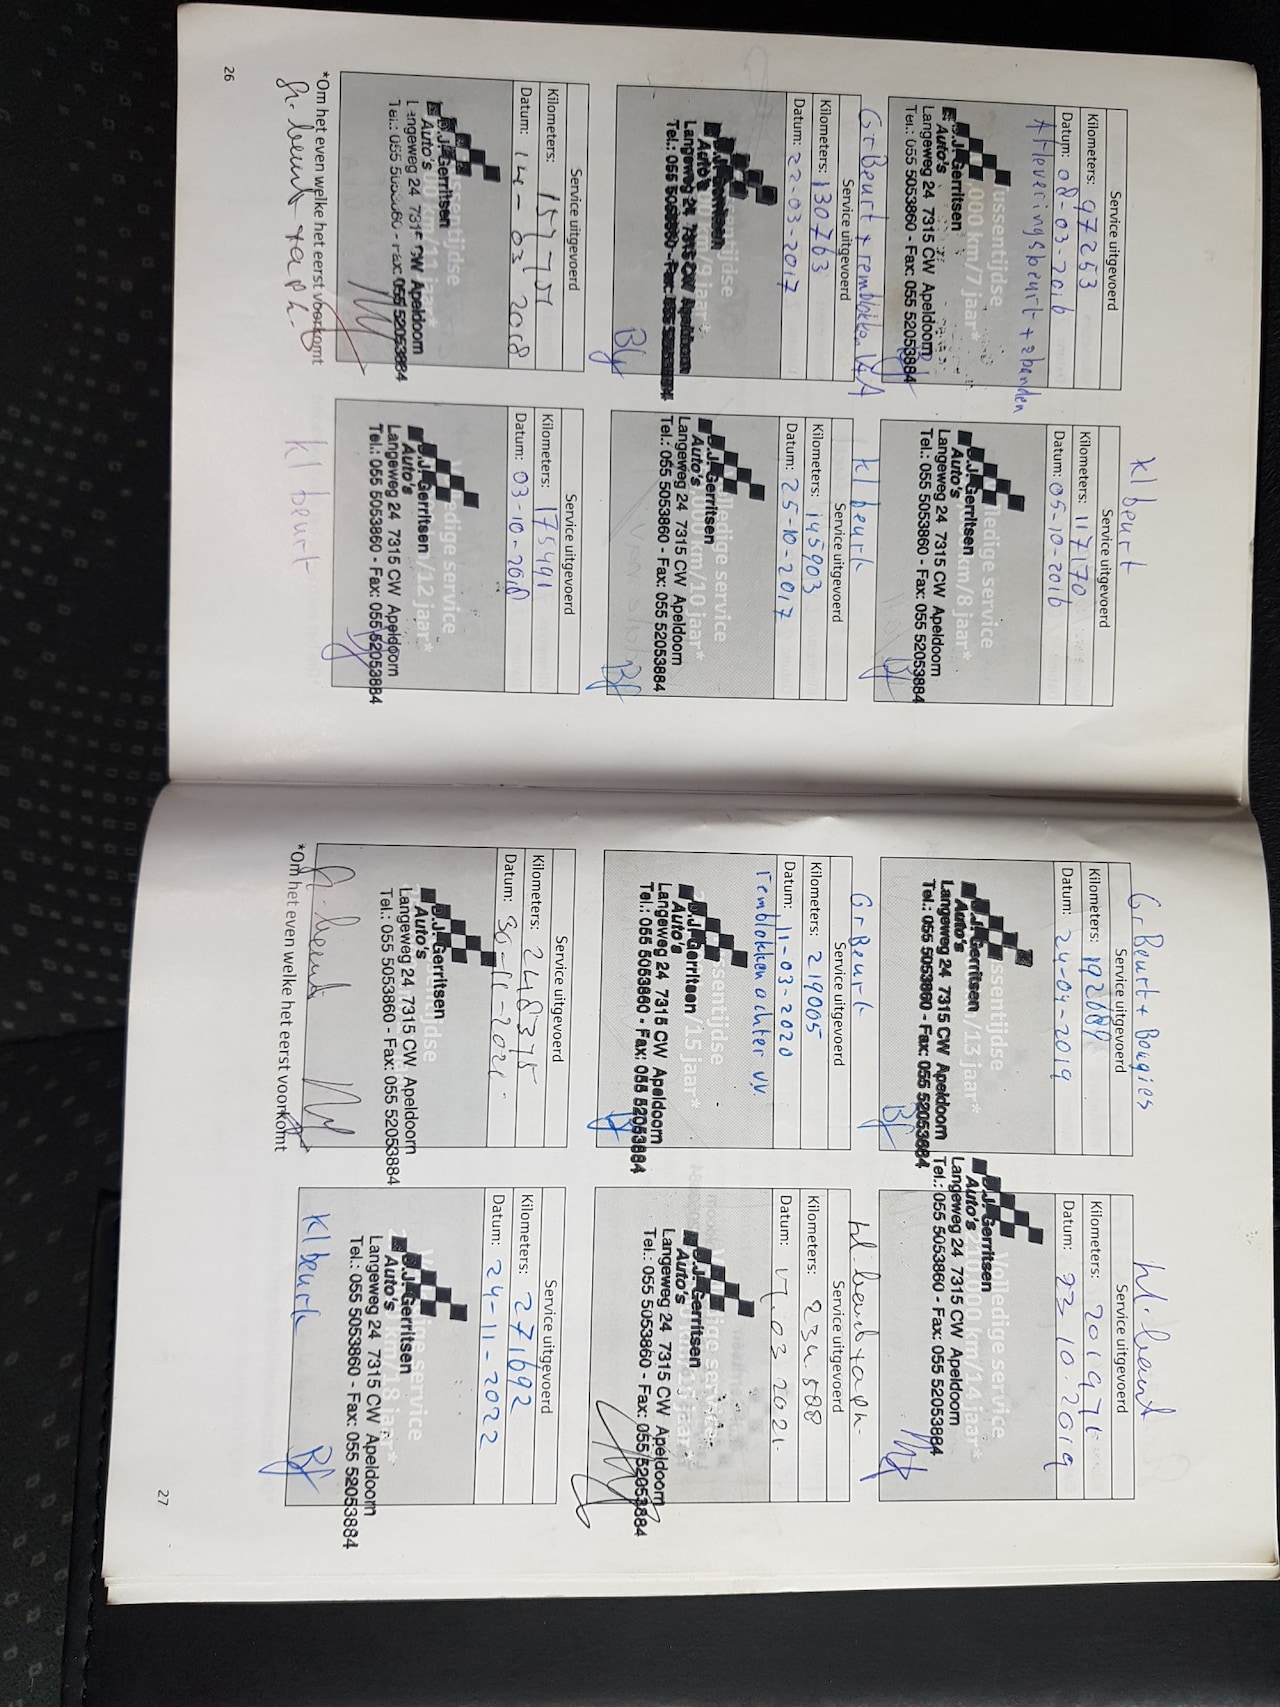 Service uitgevoerd
Kilometers: 97253
Datum: 08-03-2016
Afleveringsbeurt + 2banden
ussentijdse
.000 km/7 jaar*
D.J. Gerritsen
Auto's
Langeweg 24 7315 CW Apeldoorn
Tel.: 055 5053860 - Fax: 055 52053884
kl beurt
Service uitgevoerd
Kilometers: 117170
Datum: 05-10-2016
ledige service
km/8 jaar*
D.J. Gerritsen
Auto's
Langeweg 24 7315 CW Apeldoorn
Tel.: 055 5053860 - Fax: 055 52053884
Gr Beurt + remblokken
Service uitgevoerd
Kilometers: 130763
Datum: 22-03-2017
ssentijdse
km/9 jaar*
D.J. Gerritsen
Auto's
Langeweg 24 7315 CW Apeldoorn
Tel.: 055 5053860 - Fax: 055 52053884
kl beurt
Service uitgevoerd
Kilometers: 145903
Datum: 25-10-2017
lledige service
.000 km/10 jaar*
D.J. Gerritsen
Auto's
Langeweg 24 7315 CW Apeldoorn
Tel.: 055 5053860 - Fax: 055 52053884
Service uitgevoerd
Kilometers:
Datum: 14-03 2018
ssentijdse
km/11 jaar*
D.J. Gerritsen
Auto's
Langeweg 24 7315 CW Apeldoorn
Tel.: 055 5053860 - Fax: 055 52053884
*Om het even welke het eerst voorkomt
gr. beurt + aph.
Service uitgevoerd
Kilometers: 175491
Datum: 03-10-2018
ledige service
/12 jaar*
D.J. Gerritsen
Auto's
Langeweg 24 7315 CW Apeldoorn
Tel.: 055 5053860 - Fax: 055 52053884
kl beurt
26
Gr Beurt + Bougies
Service uitgevoerd
Kilometers:
Datum: 24-04-2019
ssentijdse
/13 jaar*
D.J. Gerritsen
Auto's
Langeweg 24 7315 CW Apeldoorn
Tel.: 055 5053860 - Fax: 055 52053884
kl. beurt
Service uitgevoerd
Kilometers: 201971
Datum: 23 10-2019
Volledige service
210.000 km/14 jaar*
D.J. Gerritsen
Auto's
Langeweg 24 7315 CW Apeldoorn
Tel.: 055 5053860 - Fax: 055 52053884
Gr Beurt
Service uitgevoerd
Kilometers: 219005
Datum: 11-03-2020
remblokken achter v.v.
ssentijdse
/15 jaar*
D.J. Gerritsen
Auto's
Langeweg 24 7315 CW Apeldoorn
Tel.: 055 5053860 - Fax: 055 52053884
kl. beurt + aph.
Service uitgevoerd
Kilometers: 234508
Datum: 03 2021
D.J. Gerritsen
Auto's
Langeweg 24 7315 CW Apeldoorn
Tel.: 055 5053860 - Fax: 055 52053884
Service uitgevoerd
Kilometers: 248375
Datum:
D.J. Gerritsen
Auto's
Langeweg 24 7315 CW Apeldoorn
Tel.: 055 5053860 - Fax: 055 52053884
gr. beurt
*Om het even welke het eerst voorkomt
Service uitgevoerd
Kilometers: 271692
Datum: 24-11-2022
service
km/18 jaar*
D.J. Gerritsen
Auto's
Langeweg 24 7315 CW Apeldoorn
Tel.: 055 5053860 - Fax: 055 52053884
kl beurt
27